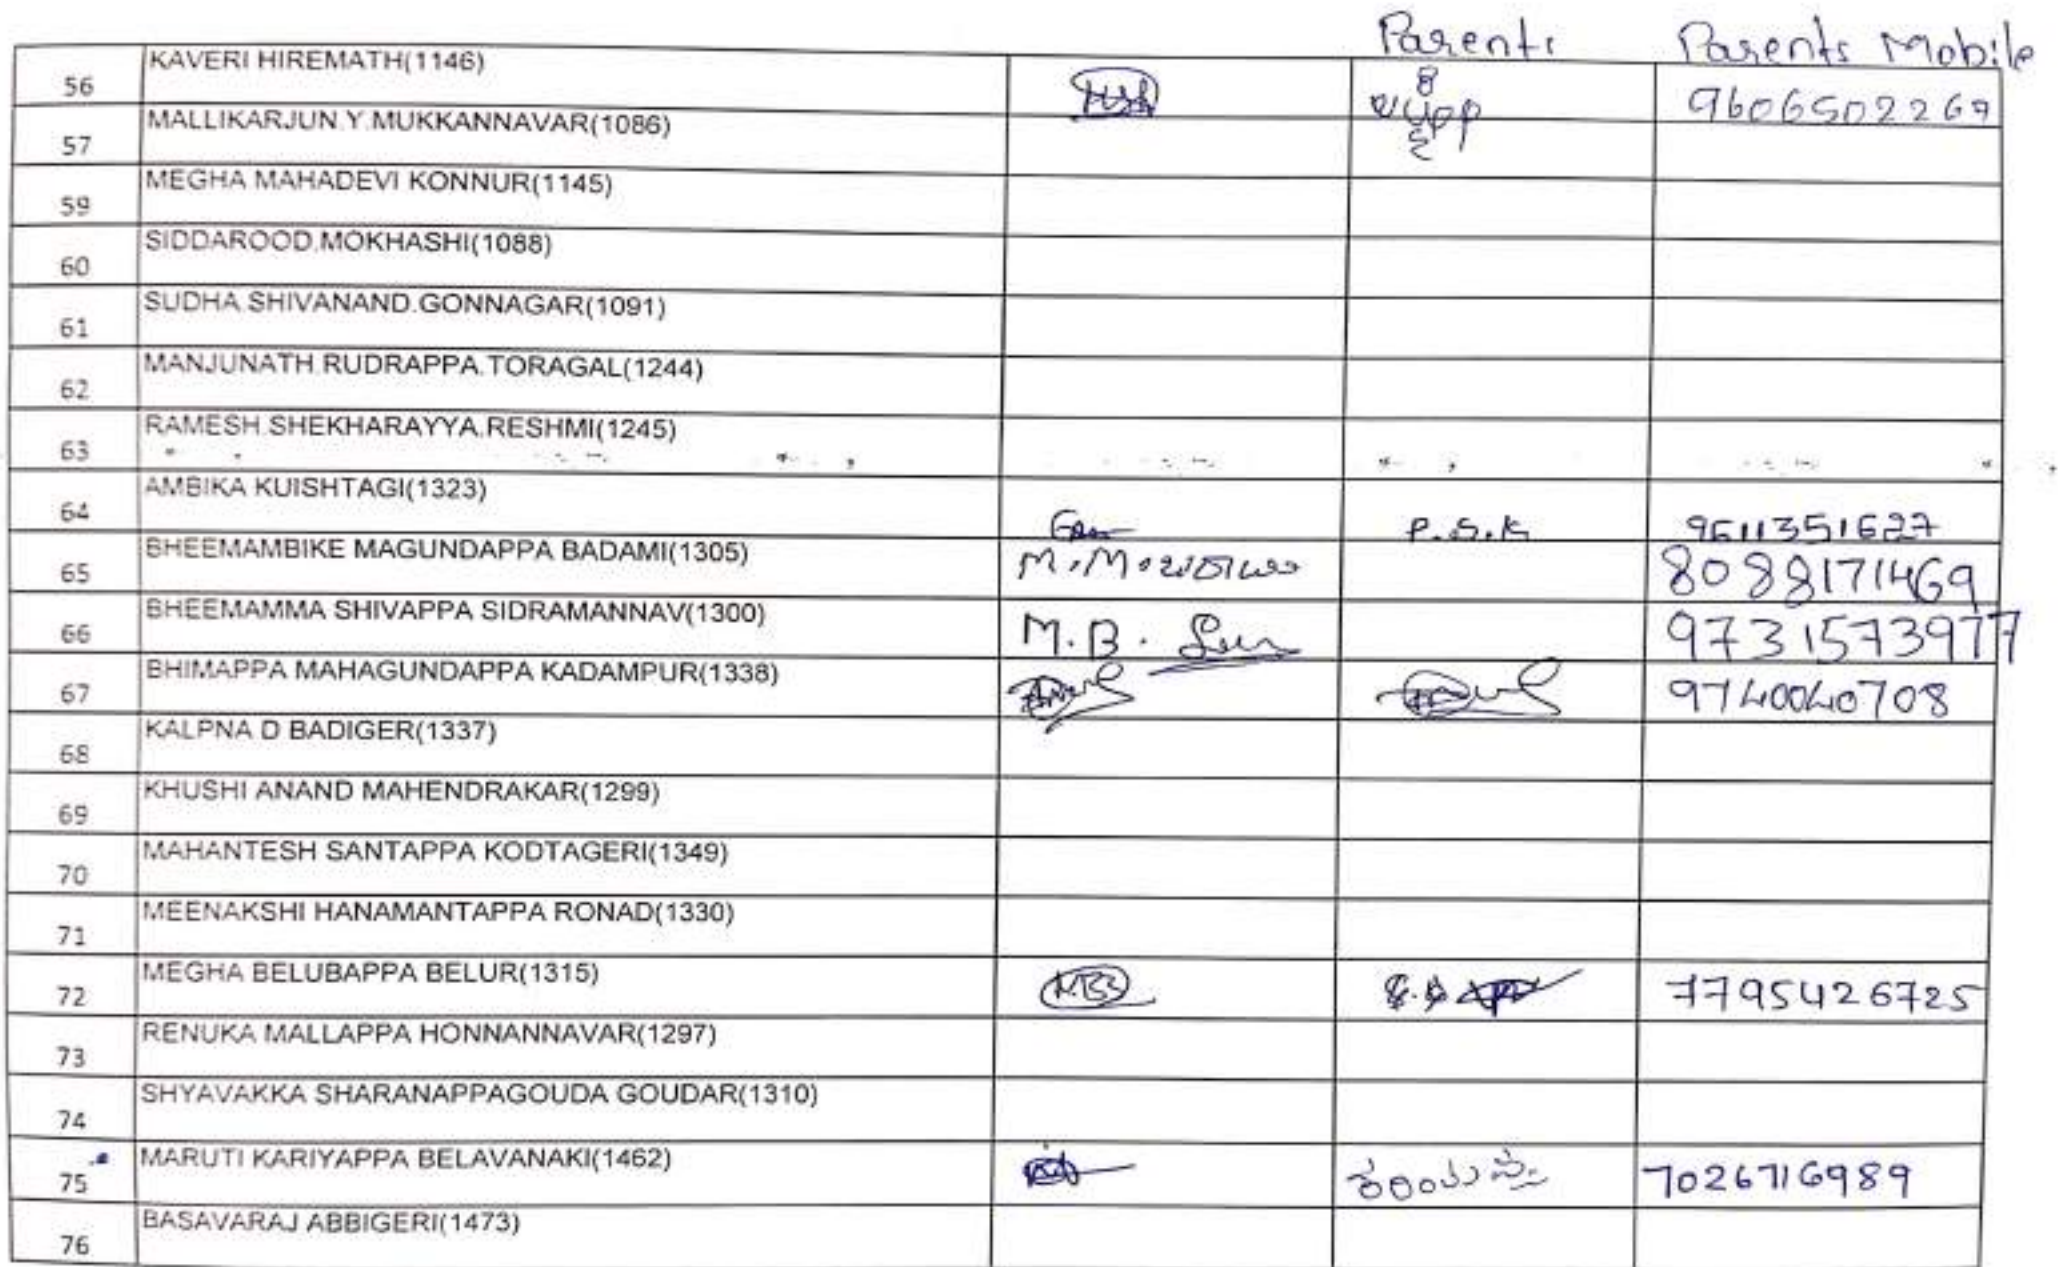 Parents Parents Mobile
56 KAVERI HIREMATH(1146) 9606502269
57 MALLIKARJUN.Y.MUKKANNAVAR(1086)
59 MEGHA MAHADEVI KONNUR(1145)
60 SIDDAROOD.MOKHASHI(1088)
61 SUDHA.SHIVANAND.GONNAGAR(1091)
62 MANJUNATH.RUDRAPPA.TORAGAL(1244)
63 RAMESH.SHEKHARAYYA.RESHMI(1245)
64 AMBIKA KUISHTAGI(1323) P.S.K 9611351627
65 BHEEMAMBIKE MAGUNDAPPA BADAMI(1305) M.M. ಬಾದಾಮಿ 8088171469
66 BHEEMAMMA SHIVAPPA SIDRAMANNAV(1300) M.B. 9731573977
67 BHIMAPPA MAHAGUNDAPPA KADAMPUR(1338) 9740040708
68 KALPNA D BADIGER(1337)
69 KHUSHI ANAND MAHENDRAKAR(1299)
70 MAHANTESH SANTAPPA KODTAGERI(1349)
71 MEENAKSHI HANAMANTAPPA RONAD(1330)
72 MEGHA BELUBAPPA BELUR(1315) MBB 7795426725
73 RENUKA MALLAPPA HONNANNAVAR(1297)
74 SHYAVAKKA SHARANAPPAGOUDA GOUDAR(1310)
75 MARUTI KARIYAPPA BELAVANAKI(1462) ಕರಿಯಪ್ಪ 7026716989
76 BASAVARAJ ABBIGERI(1473)